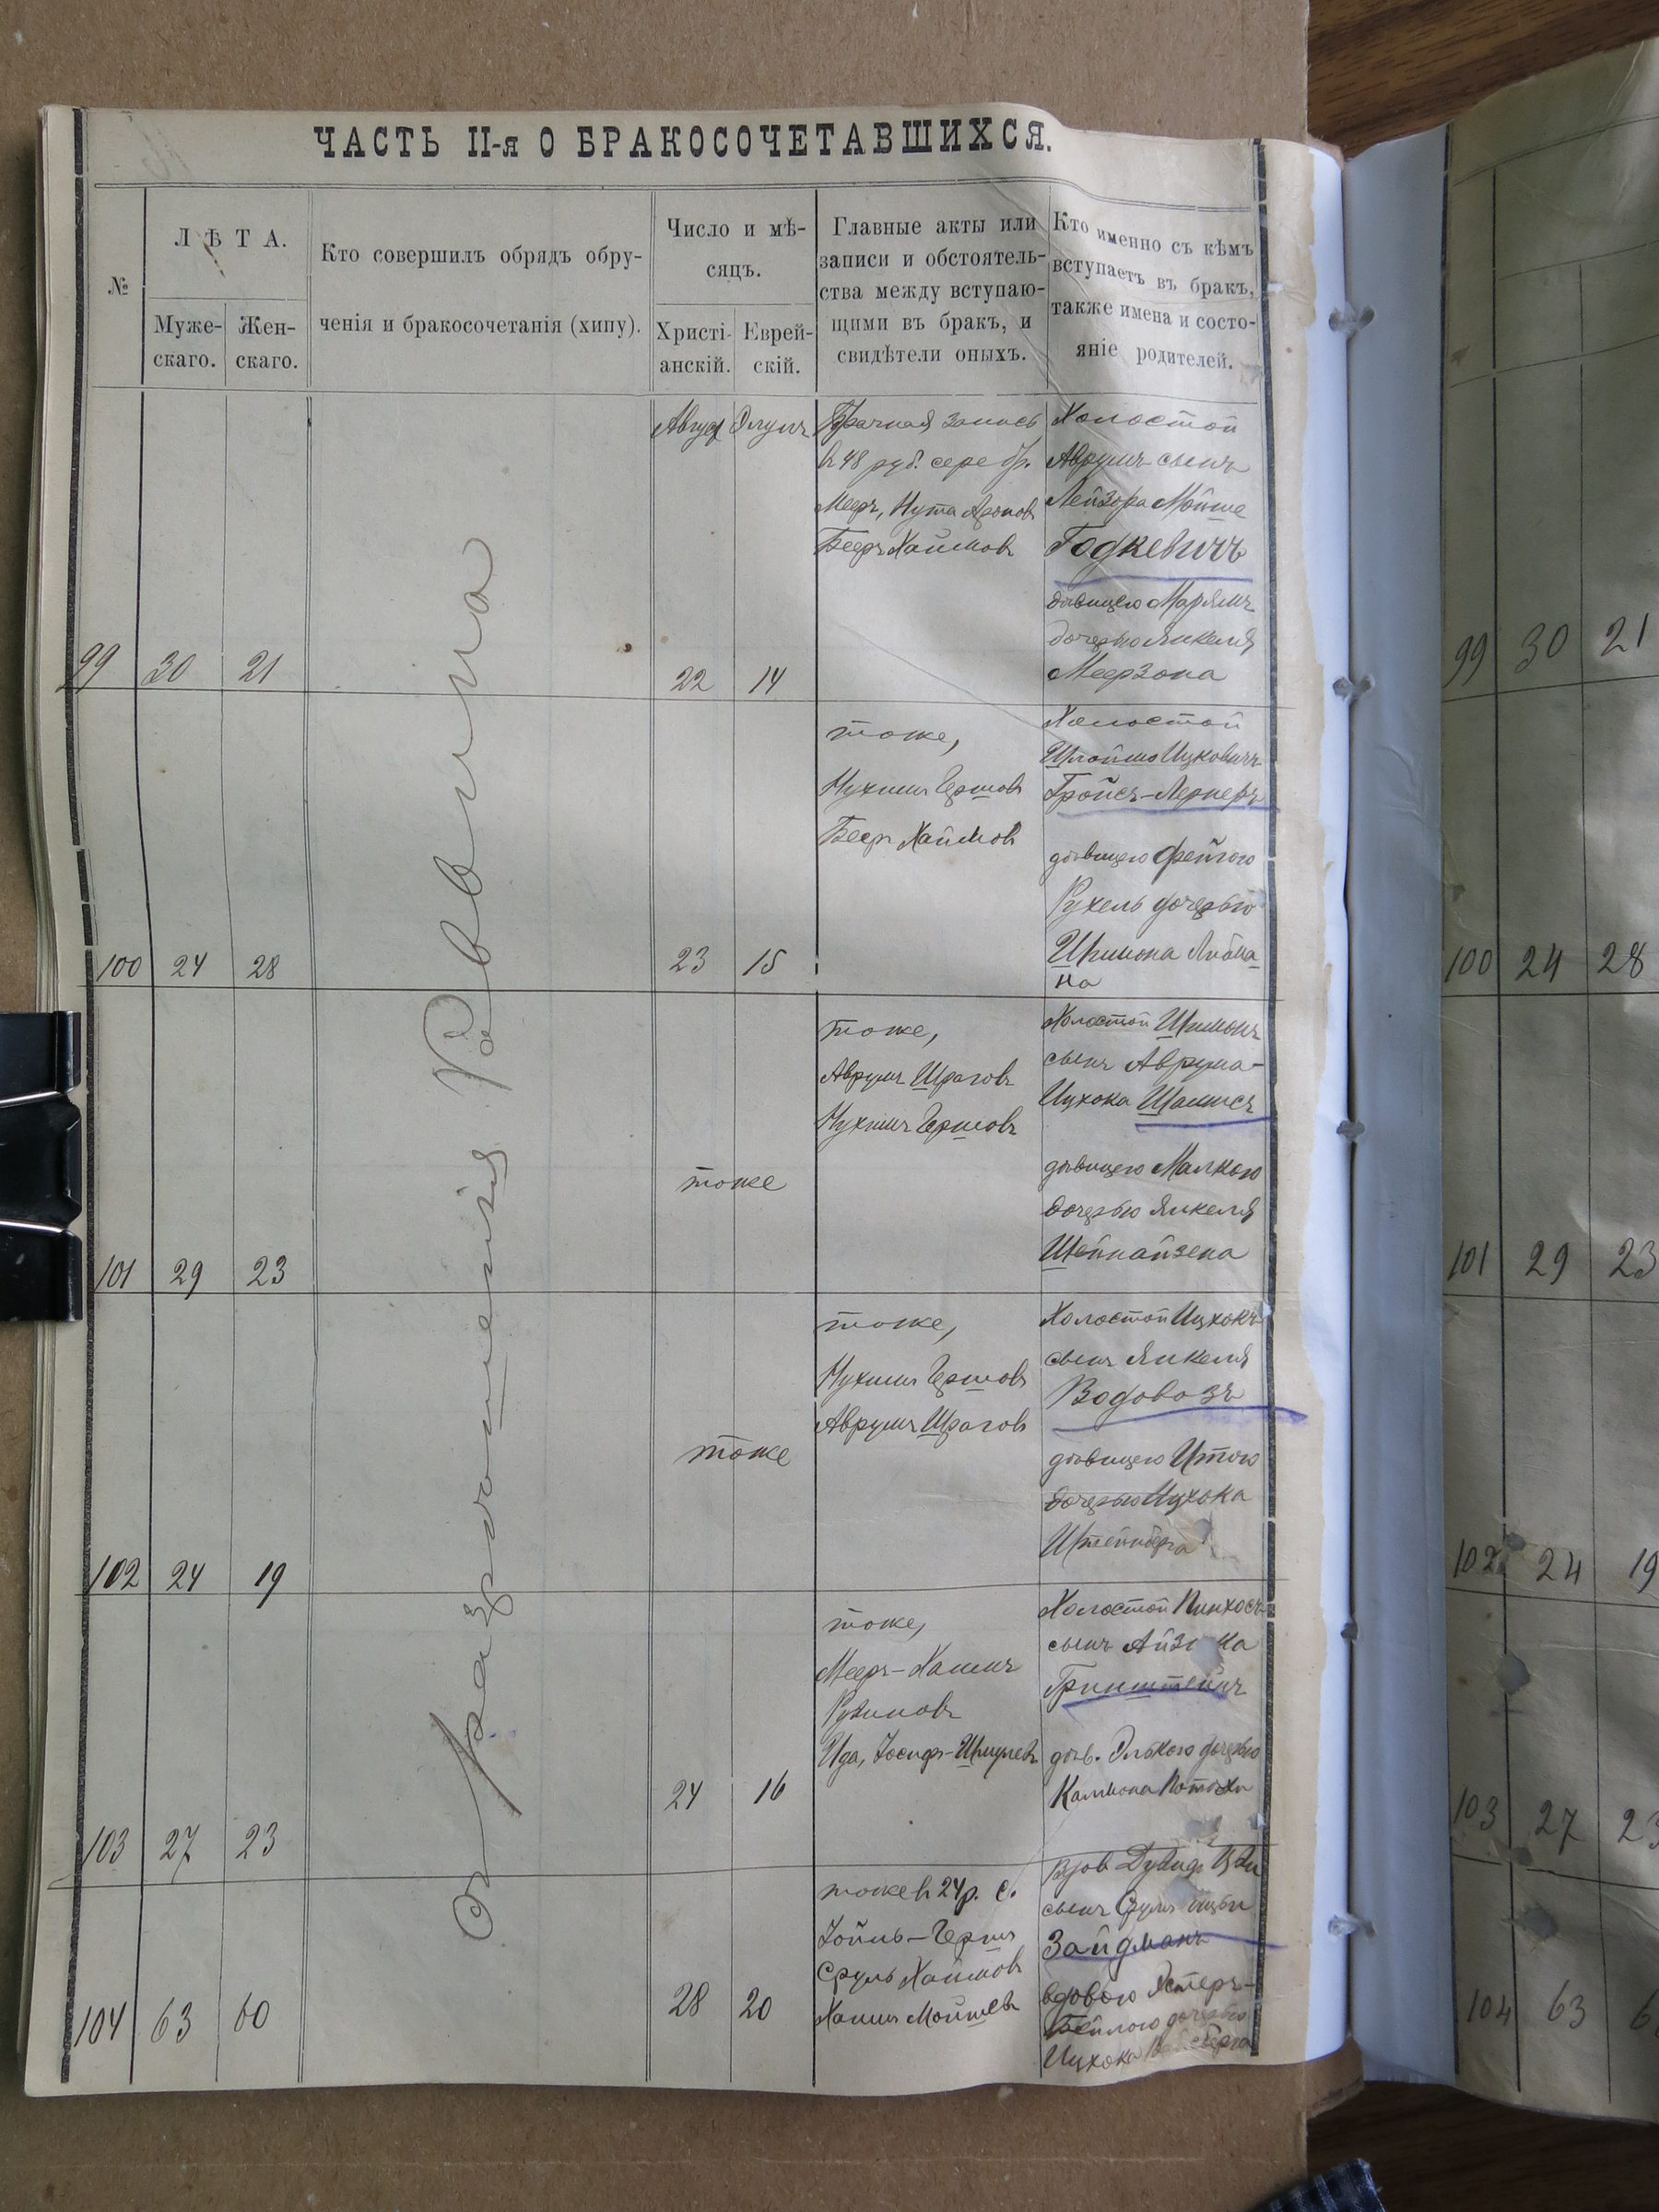 ЧАСТЬ II-я О БРАКОСОЧЕТАВШИХСЯ.
№
ЛѢТА.
Муже-
скаго.
Жен-
скаго.
Кто совершилъ обрядъ обру-
ченія и бракосочетанія (хипу).
Число и мѣ-
сяцъ.
Христі-
анскій.
Еврей-
скій.
Главные акты или
записи и обстоятель-
ства между вступаю-
щими въ бракъ, и
свидѣтели оныхъ.
Кто именно съ кѣмъ
вступаетъ въ бракъ,
также имена и состо-
яніе родителей.
съ разрѣшенія Раввина
99 30 21
Август Элулъ
22 14
Брачная запись
в 48 руб. серебр.
Мееръ, Нута Ароновъ
Бееръ Хаимовъ
Холостой
Аврумъ сынъ
Лейзора Мойше
Годкевичъ
дѣвицею Марьямъ
дочерью Янкеля
Меерзона
100 24 28
23 15
тоже,
Нухимъ Гершовъ
Бееръ Хаимовъ
Холостой
Шлоймо Ицковичъ
Гройсъ-Лернеръ
дѣвицею Фейгою
Рухель дочерью
Шимона Либма-
на
101 29 23
тоже
тоже,
Аврумъ Шраговъ
Нухимъ Гершовъ
Холостой Шимонъ
сынъ Аврума-
Ицхока Шамисъ
дѣвицею Малкою
дочерью Янкеля
Шейнайзена
102 24 19
тоже
тоже,
Нухимъ Гершовъ
Аврумъ Шраговъ
Холостой Ицхокъ
сынъ Янкеля
Водовозъ
дѣвицею Итою
дочерью Ицхока
Штейнберга
103 27 23
24 16
тоже,
Мееръ-Хаимъ
Рувиновъ
Ида, Іосифъ-Шмулевъ
Холостой Пинхосъ
сынъ Айзика
Гринштейнъ
дѣв. Элькою дочерью
Калмона
104 63 60
28 20
тоже в 24 р. с.
Іойль-Гершъ
Сруль Хаимовъ
Хаимъ Мойшевъ
Вдов
сынъ
Зайдманъ
вдовою Эстеръ-
Бейлою дочерью
Ицхока
99 30 21
100 24 28
101 29 23
102 24 19
103 27 23
104 63